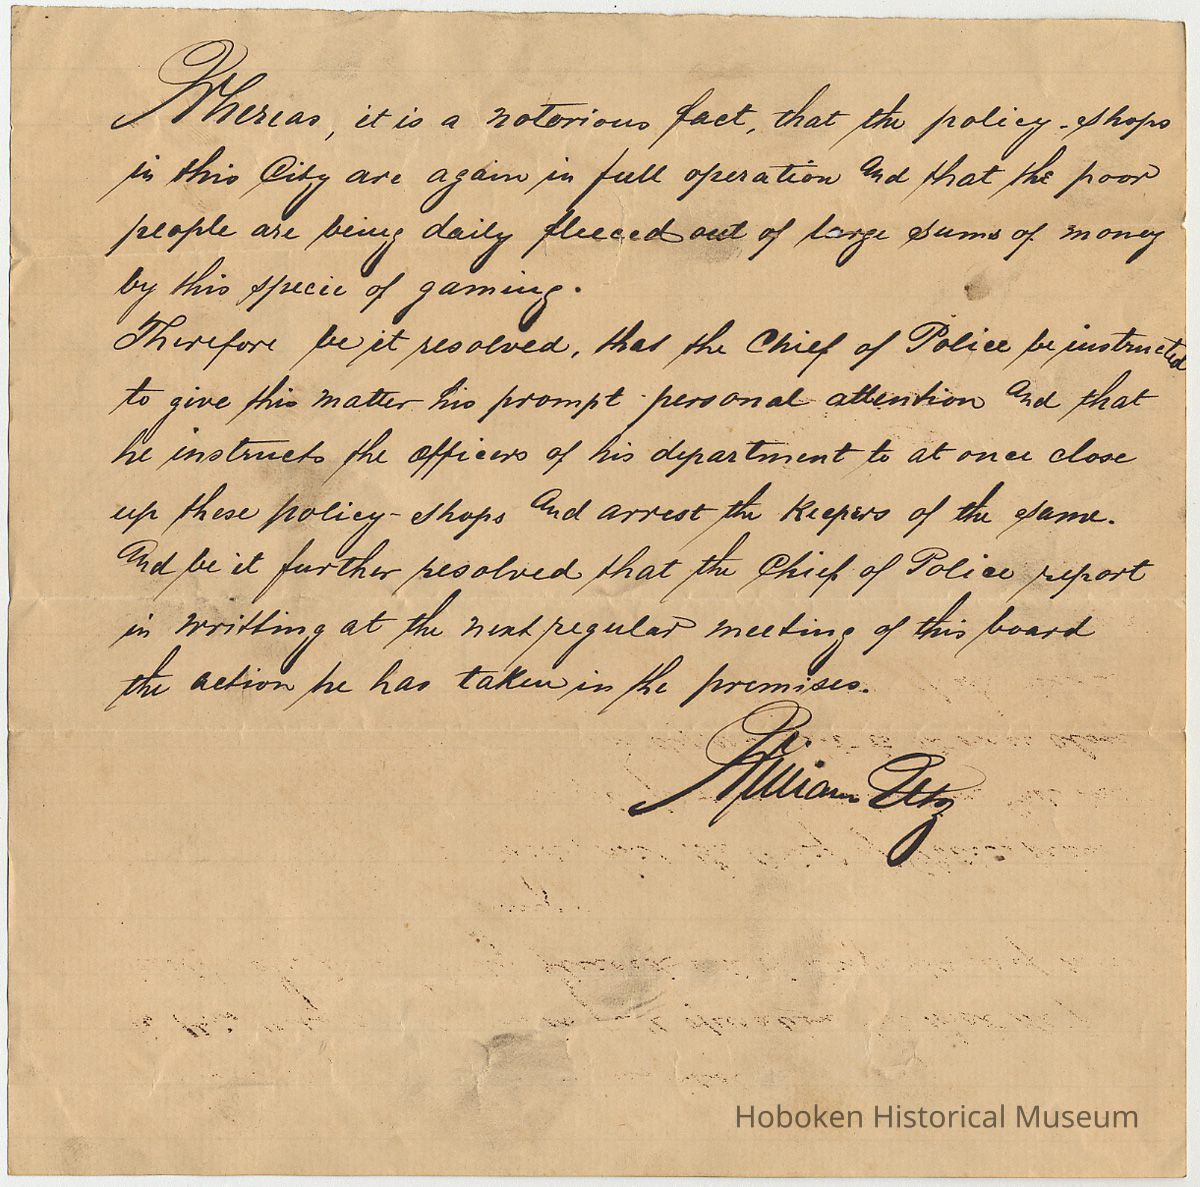 Whereas, it is a notorious fact, that the policy-shops
in this City are again in full operation And that the poor
people are being daily fleeced out of large sums of money
by this specie of gaming.
Therefore be it resolved, that the Chief of Police be instructed
to give this matter his prompt personal attention And that
he instructs the officers of his department to at once close
up these policy-shops And arrest the Keepers of the same.
And be it further resolved that the Chief of Police report
in writting at the next regular meeting of this board
the action he has taken in the premises.
William Utz
Hoboken Historical Museum